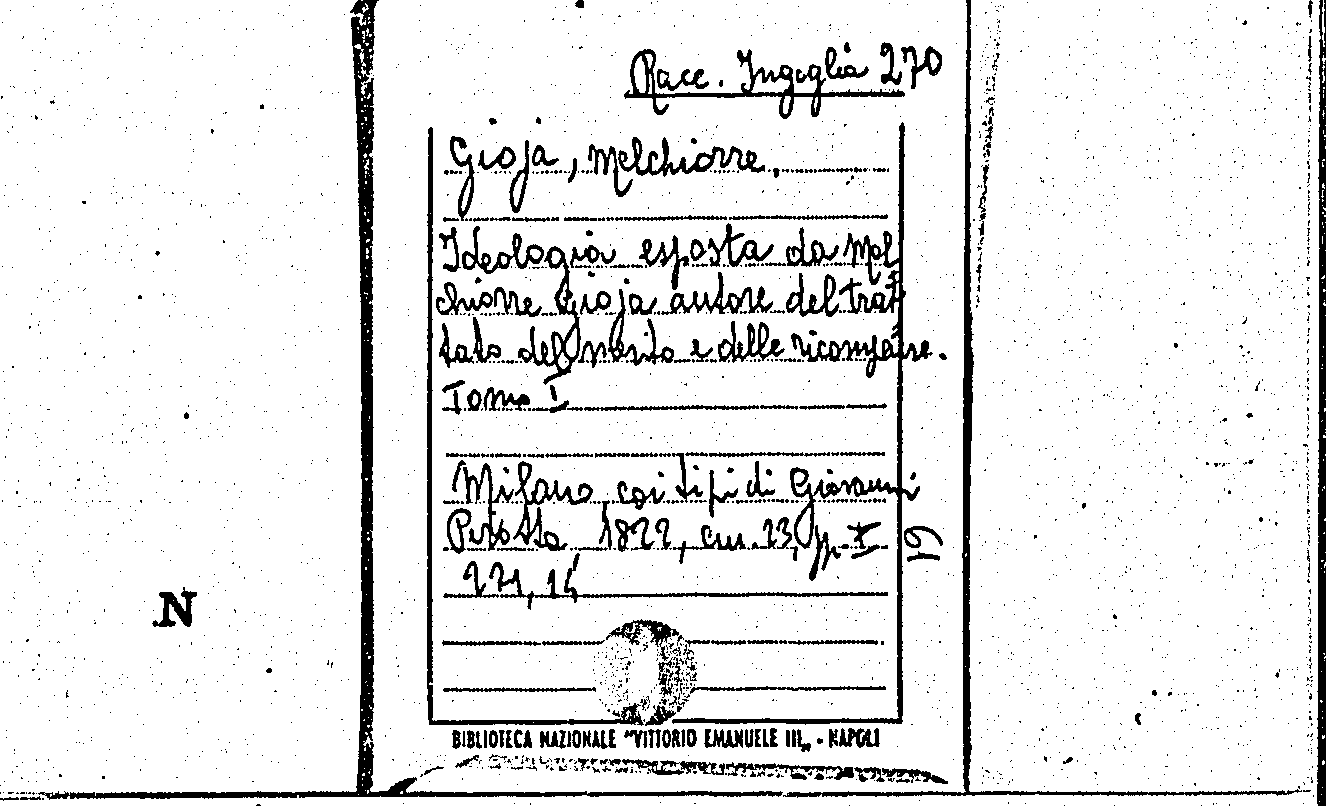 Racc. Ingeglia 270
Gioja, Melchiorre.
Ideologia esposta da Mel
chiorre Gioja autore del trat
tato del merito e delle ricompense.
Tomo I
Milano coi tipi di Giovanni
Pirotta 1822, cm. 23, pp. X
271, 14
19
N
BIBLIOTECA NAZIONALE "VITTORIO EMANUELE III„ - NAPOLI